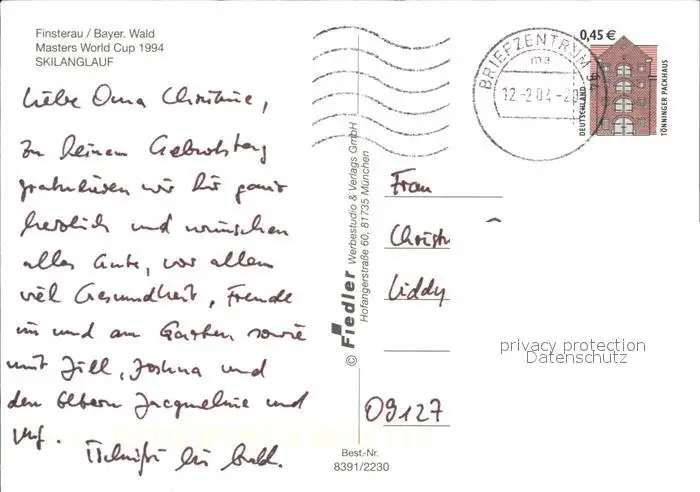 Finsterau / Bayer. Wald
Masters World Cup 1994
SKILANGLAUF
Liebe Oma Christine,
zu deinem Geburtstag
gratulieren wir dir ganz
herzlich und wünschen
alles Gute, vor allem
viel Gesundheit, Freude
im und am Garten sowie
mit Jill, Joshua und
den Eltern Jacqueline und
Tschüß bis bald.
© Fiedler Werbestudio & Verlags GmbH
Hofangerstraße 60, 81735 München
Best.-Nr.
8391/2230
BRIEFZENTRUM 94
ma
12.-2.04.-2
0,45 €
DEUTSCHLAND
TÖNNINGER PACKHAUS
Frau
Christ
Liddy
09127
privacy protection
Datenschutz